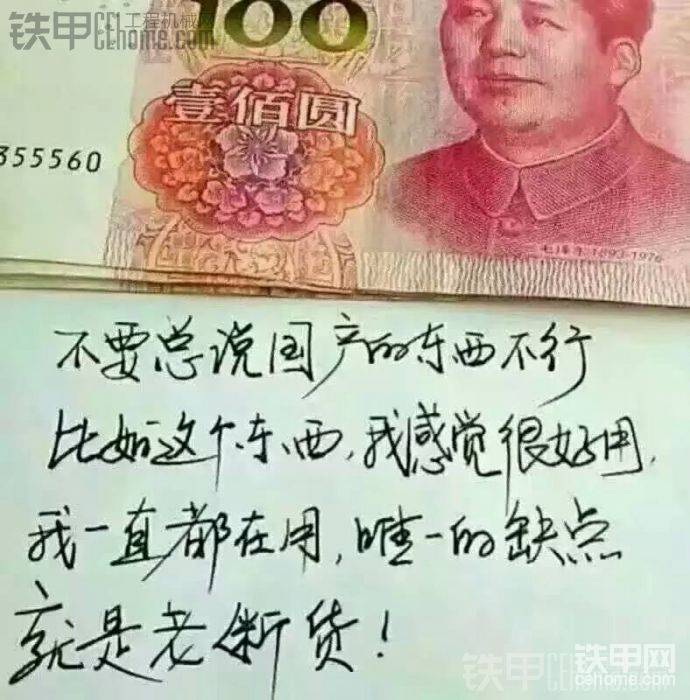 铁甲 工程机械网
CEhome.com
100
壹佰圆
355560
毛泽东 1893-1976
不要总说国产的东西不行
比如这个东西,我感觉很好用,
我一直都在用,唯一的缺点
就是老断货!
铁甲网
cehome.com